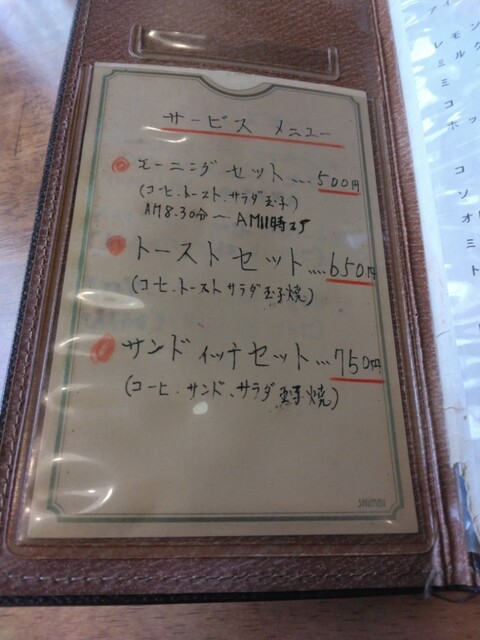 サービス メニュー
モーニングセット....500円
(コーヒ、トースト、サラダ玉子)
AM8.30分〜AM11時マデ
トーストセット....650円
(コーヒ、トーストサラダ玉子焼)
サンドイッチセット...750円
(コーヒ、サンド、サラダ玉子焼)
ア イ
レモン
ミルク
ミ
コ
ホッ
コ
ソ
オ
ミ
ト